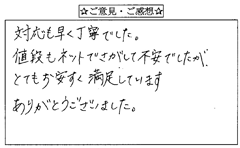 ☆ご意見・ご感想☆
対応も早く丁寧でした。
値段もネットでさがして不安でしたが、
とてもお安すく満足しています
ありがとうございました。